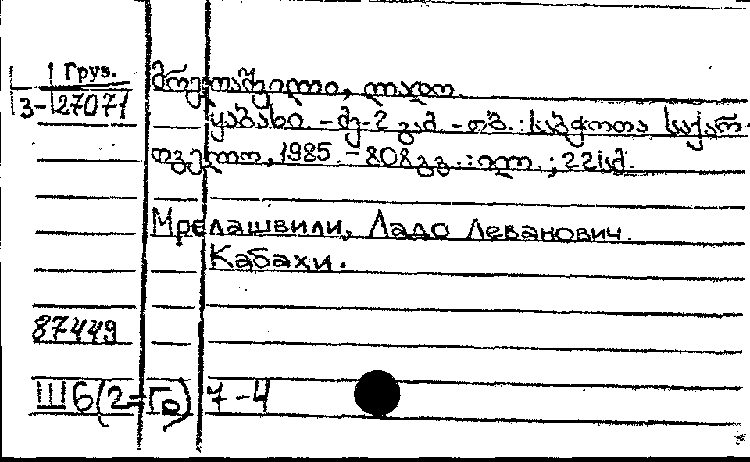 Груз.
3-27071
მრელაშვილი, ლადო.
ყაბახი. - მე-2 გამ. - თბ. : საბჭოთა საქარ-
თველო, 1985. - 808 გვ. : ილ. ; 22 სმ.
Мрелашвили, Ладо Леванович.
Кабахи.
87449
Ш6(2=Гр)7-4